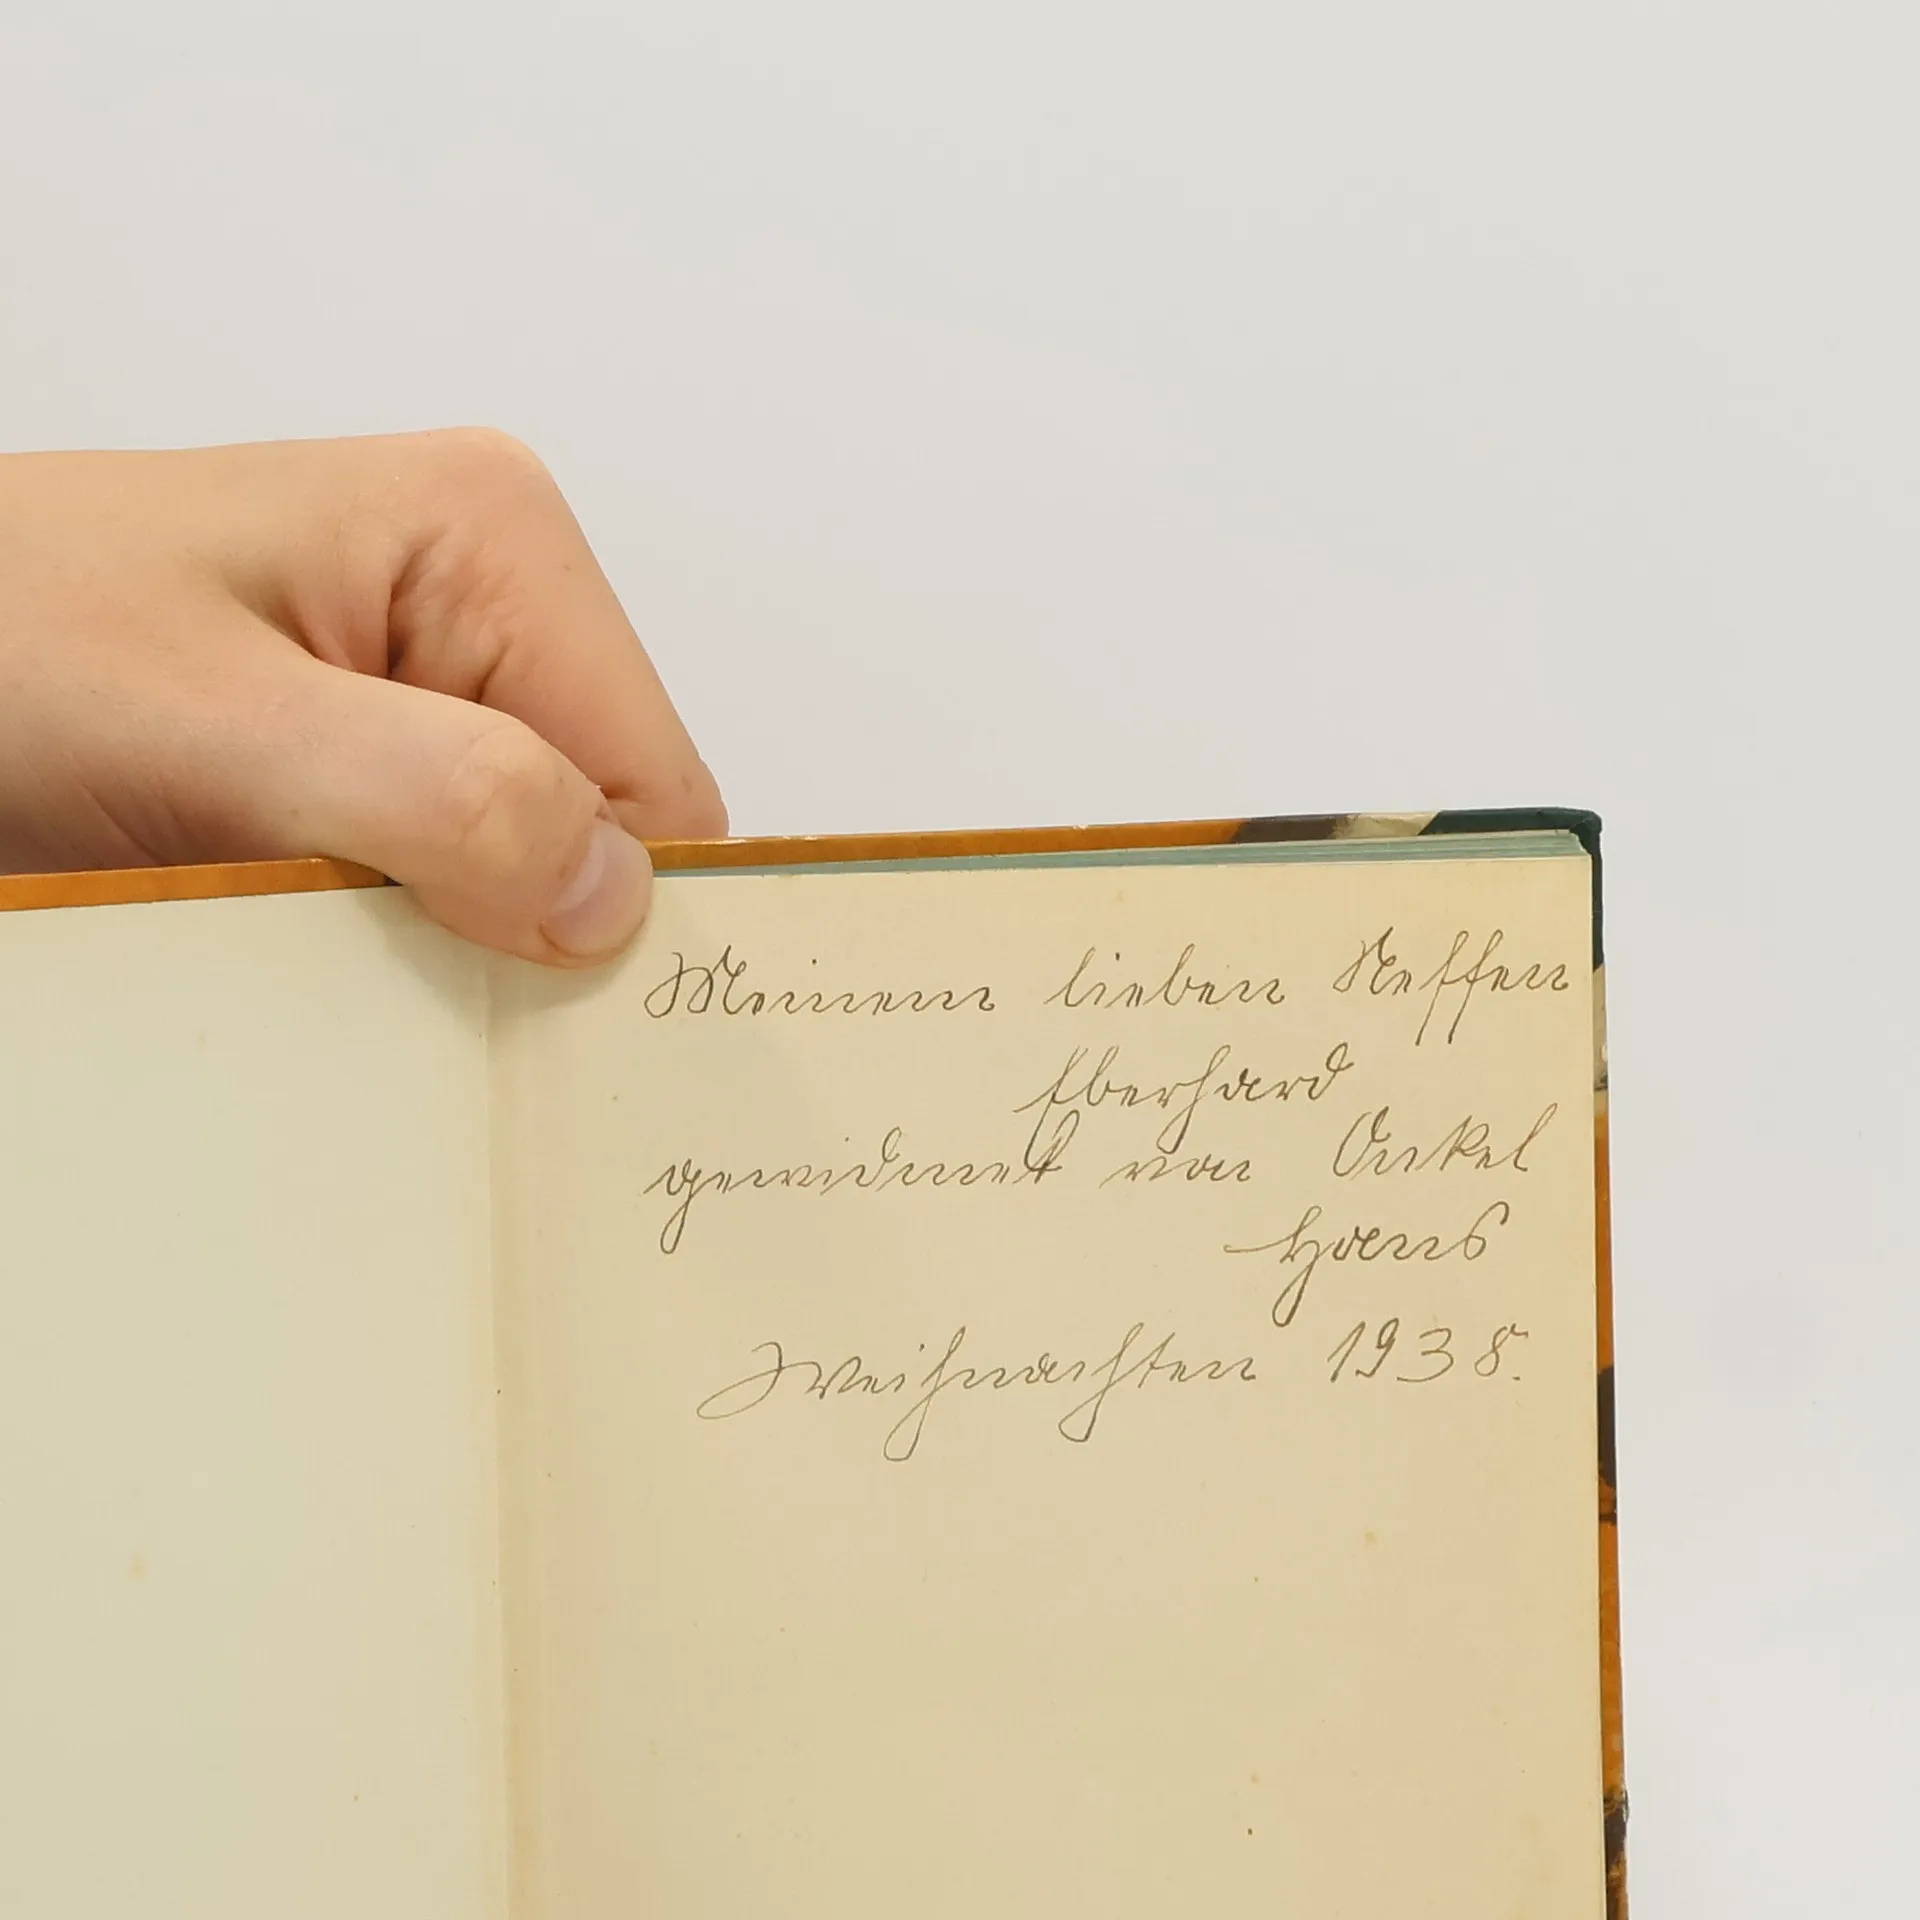 Meinem lieben Neffen
Eberhard
gewidmet von Onkel
Hans
Weihnachten 1938.